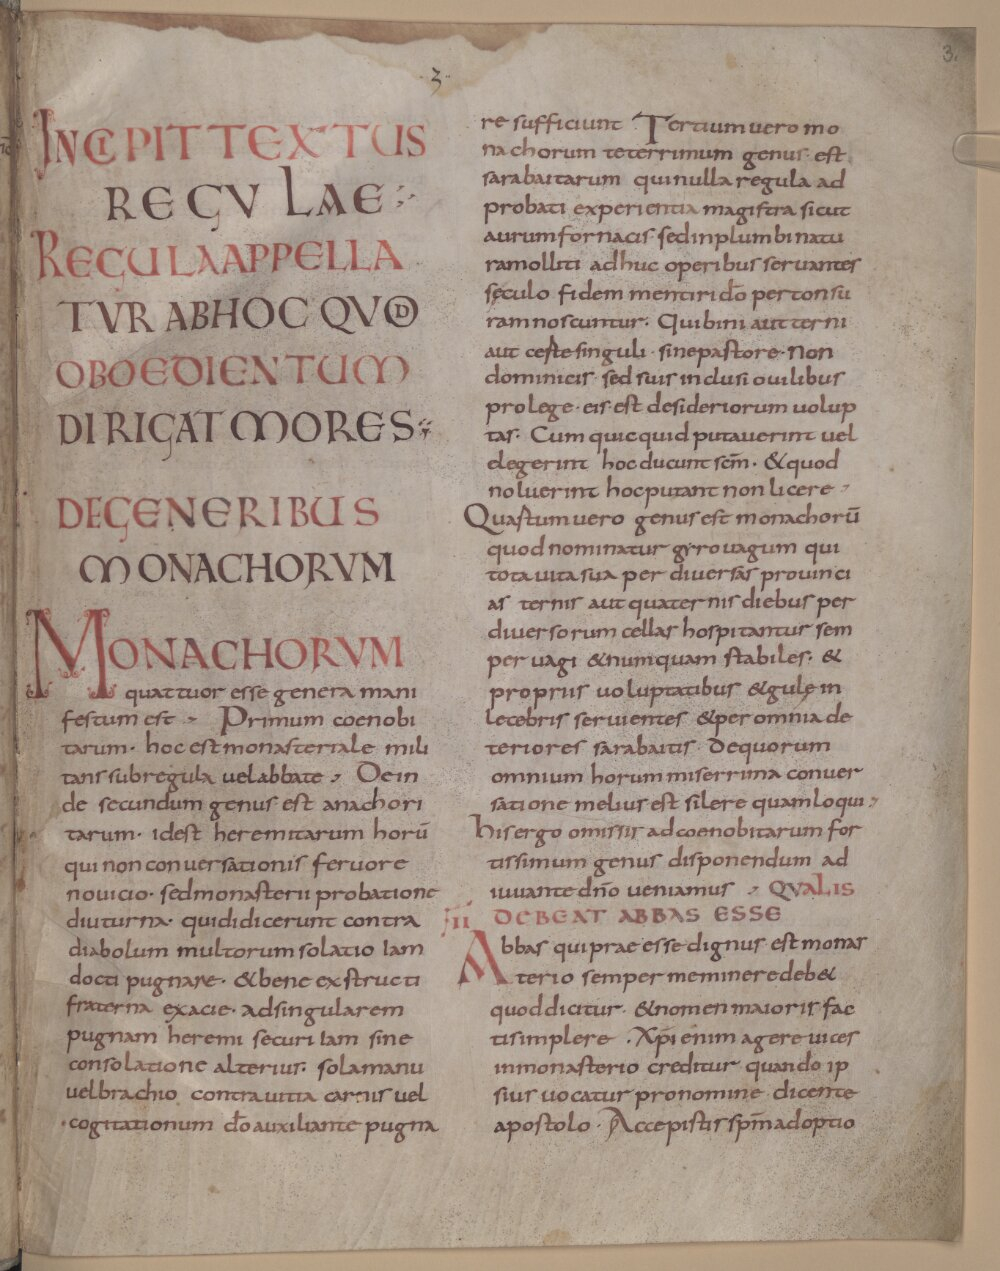 3
3.
INCIPIT TEXTUS
REGULAE
REGULA APPELLA
TVR AB HOC QVOD
OBOEDIENTUM
DIRIGAT MORES
DE GENERIBUS
MONACHORVM
MONACHORVM
quattuor esse genera mani
festum est Primum coenobi
tarum· hoc est monasteriale mili
tans sub regula vel abbate Dein
de secundum genus est anachori
tarum· id est heremitarum horū
qui non conversationis fervore
novicio· sed monasterii probatione
diuturna· qui didicerunt contra
diabolum multorum solatio Iam
docti pugnare· & bene exstructi
fraterna ex acie· ad singularem
pugnam heremi securi Iam sine
consolatione alterius· sola manu
vel brachio contra vitia carnis vel
cogitationum dō auxiliante pugna
re sufficiunt Tertium vero mo
nachorum teterrimum genus est
sarabaitarum qui nulla regula ad
probati experientia magistra sicut
aurum fornacis· sed in plumbi natu
ra molliti adhuc operibus servantes
sęculo fidem mentiri dō per tonsu
ram noscuntur· Qui bini aut terni
aut certe singuli· sine pastore· Non
dominicis· sed suis inclusi ovilibus
pro lege· eis est desideriorum volup
tas· Cum quicquid putaverint vel
elegerint hoc ducunt scm̄· & quod
noluerint hoc putant non licere
Quartum vero genus est monachorū
quod nominatur gyrovagum qui
tota vita sua per diversas provinci
as ternis aut quaternis diebus per
diversorum cellas hospitantur sem
per vagi & numquam stabiles· &
propriis voluptatibus & gulę in
lecebris servientes & per omnia de
teriores sarabaitis· De quorum
omnium horum miserrima conver
satione melius est silere quam loqui
His ergo omissis ad coenobitarum for
tissimum genus disponendum ad
iuvante dn̄o veniamus QVALIS
II DEBEAT ABBAS ESSE
Abbas qui prae esse dignus est monas
terio semper meminere deb&
quod dicitur· & nomen maioris fac
tis implere· Xp̄i enim agere vices
in monasterio creditur quando ip
sius vocatur pronomine dicente
apostolo· Accepistis spm̄ adoptio